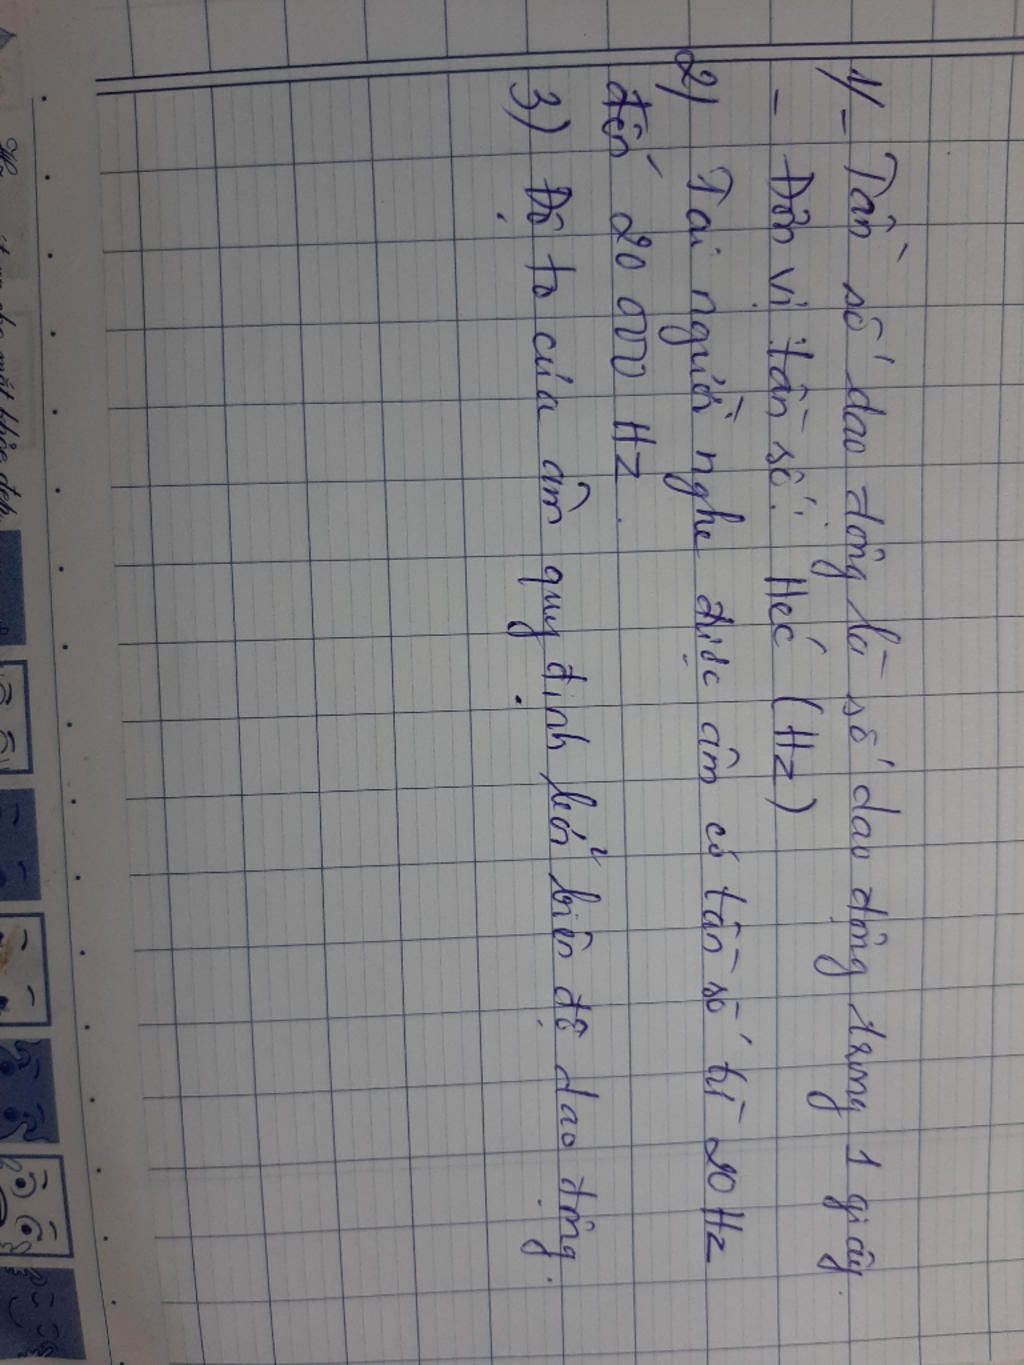 1/- Tần số dao động là số dao động trong 1 giây.
- Đơn vị tần số: Héc (Hz)
2/ Tai người nghe được âm có tần số từ 20 Hz
đến 20 000 Hz.
3) Độ to của âm quy định bởi biên độ dao động.
mắt khỏe đẹp